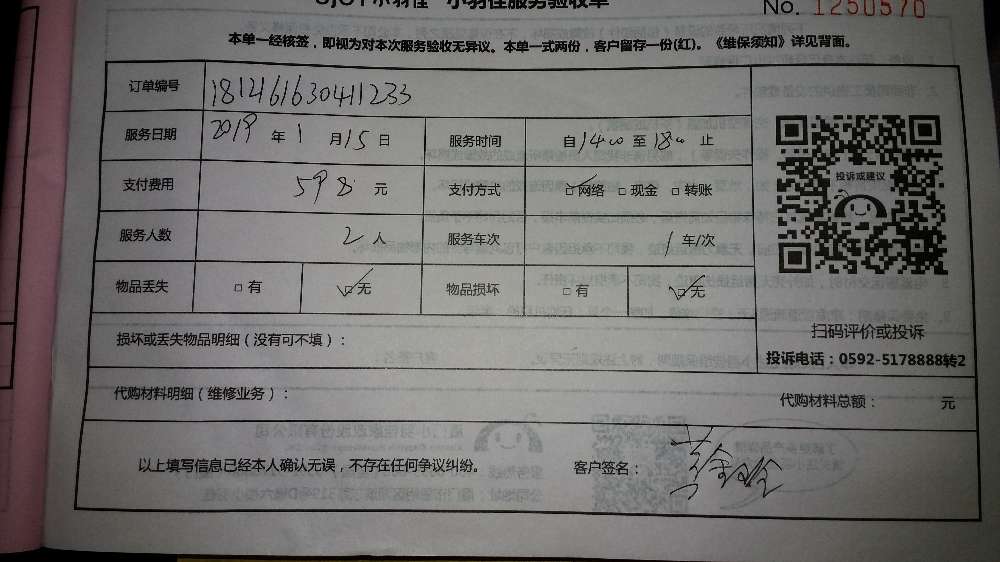 小羽佳服务验收单
No. 1250570
本单一经核签，即视为对本次服务验收无异议。本单一式两份，客户留存一份(红)。《维保须知》详见背面。
订单编号 181461630411233
服务日期 2019 年 1 月 15 日 服务时间 自 1400 至 1800 止
支付费用 598 元 支付方式 ☑网络 □现金 □转账
服务人数 2 人 服务车次 1 车/次
物品丢失 □有 ☑无 物品损坏 □有 ☑无
投诉或建议
扫码评价或投诉
投诉电话：0592-5178888转2
损坏或丢失物品明细（没有可不填）：
代购材料明细（维修业务）： 代购材料总额： 元
以上填写信息已经本人确认无误，不存在任何争议纠纷。 客户签名：